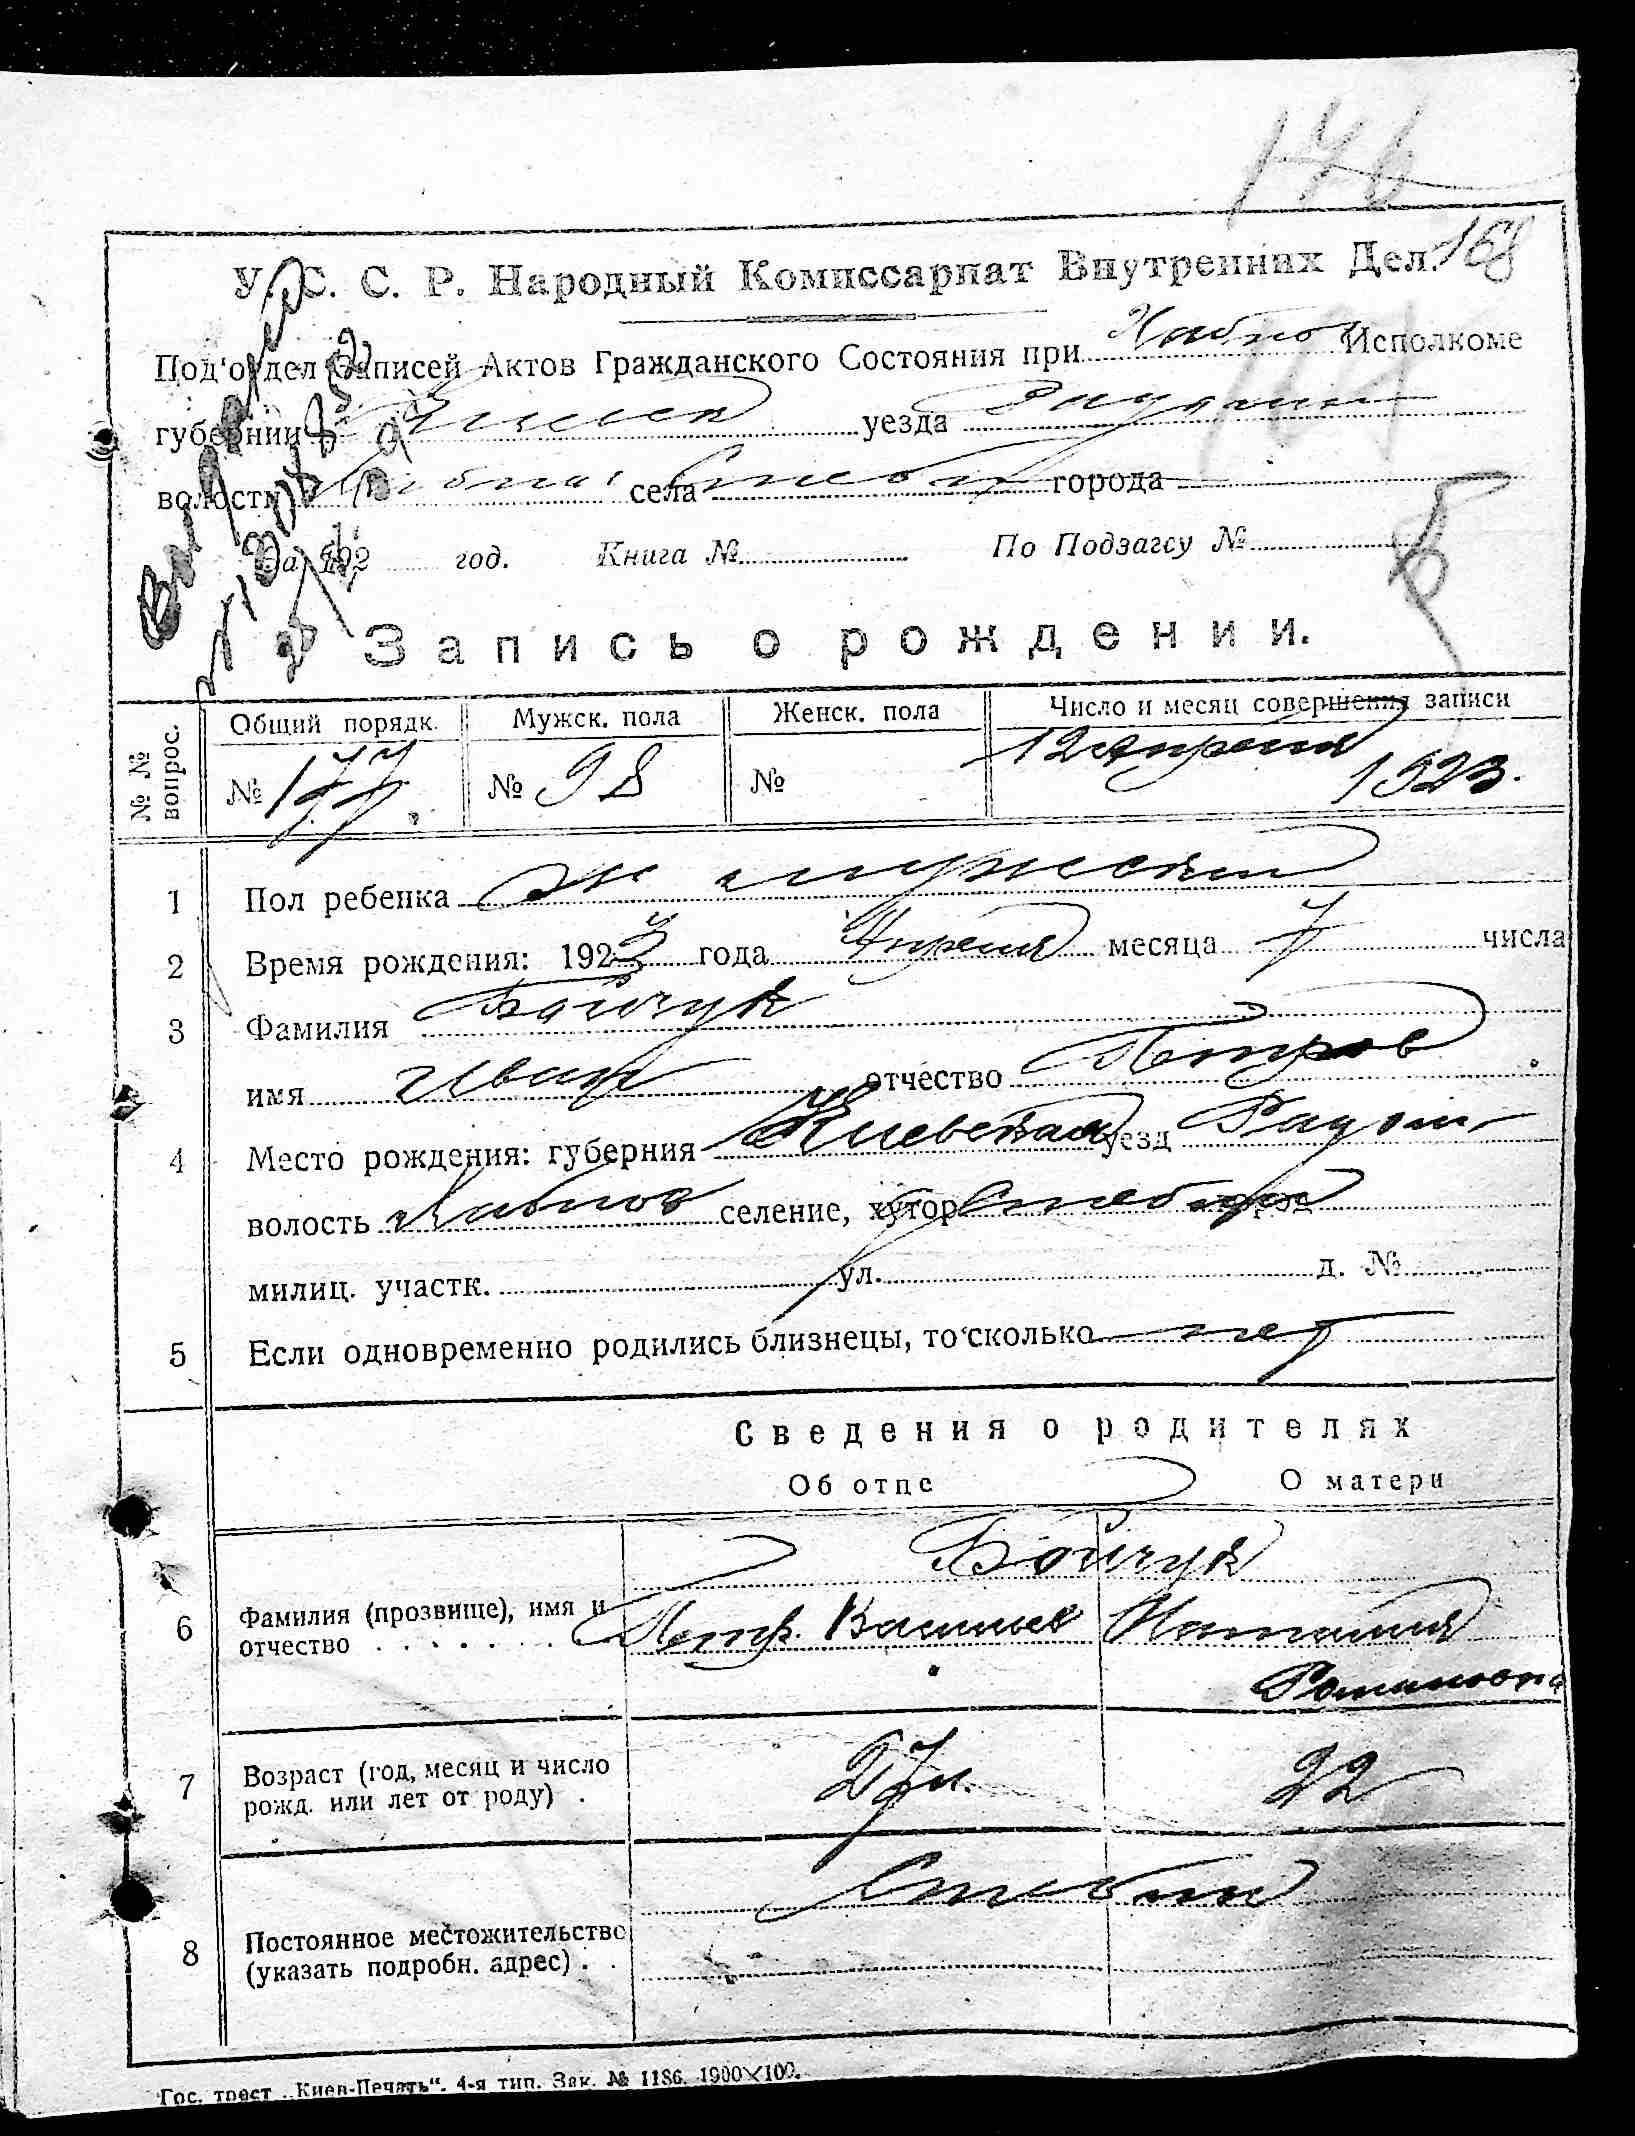 176
168
У. С. С. Р. Народный Комиссариат Внутренних Дел.
Под'отдел Записей Актов Гражданского Состояния при Хабно Исполкоме
губернии Киевск уезда
волости села города
За 192 год. Книга № По Подзагсу №
Запись о рождении.
№ № вопрос.
Общий порядк. Мужск. пола Женск. пола Число и месяц совершения записи
№ 177. № 98 № 12 апреля 1923.
1 Пол ребенка мужской
2 Время рождения: 1923 года Апреля месяца 7 числа
3 Фамилия Бойчук
имя Иван отчество Петров
4 Место рождения: губерния Киевская уезд Радом
волость Хабное селение, хутор город
милиц. участк. ул. д. №
5 Если одновременно родились близнецы, то сколько нет
Сведения о родителях
Об отце О матери
Бойчук
6 Фамилия (прозвище), имя и отчество . . . . . . . Петр. Васильев Наталия
Романовна
7 Возраст (год, месяц и число рожд. или лет от роду) . 27 л. 22
8 Постоянное местожительство (указать подробн. адрес) . .
Гос. трест „Киев-Печать“. 4-я тип. Зак. № 1186. 1900×100.